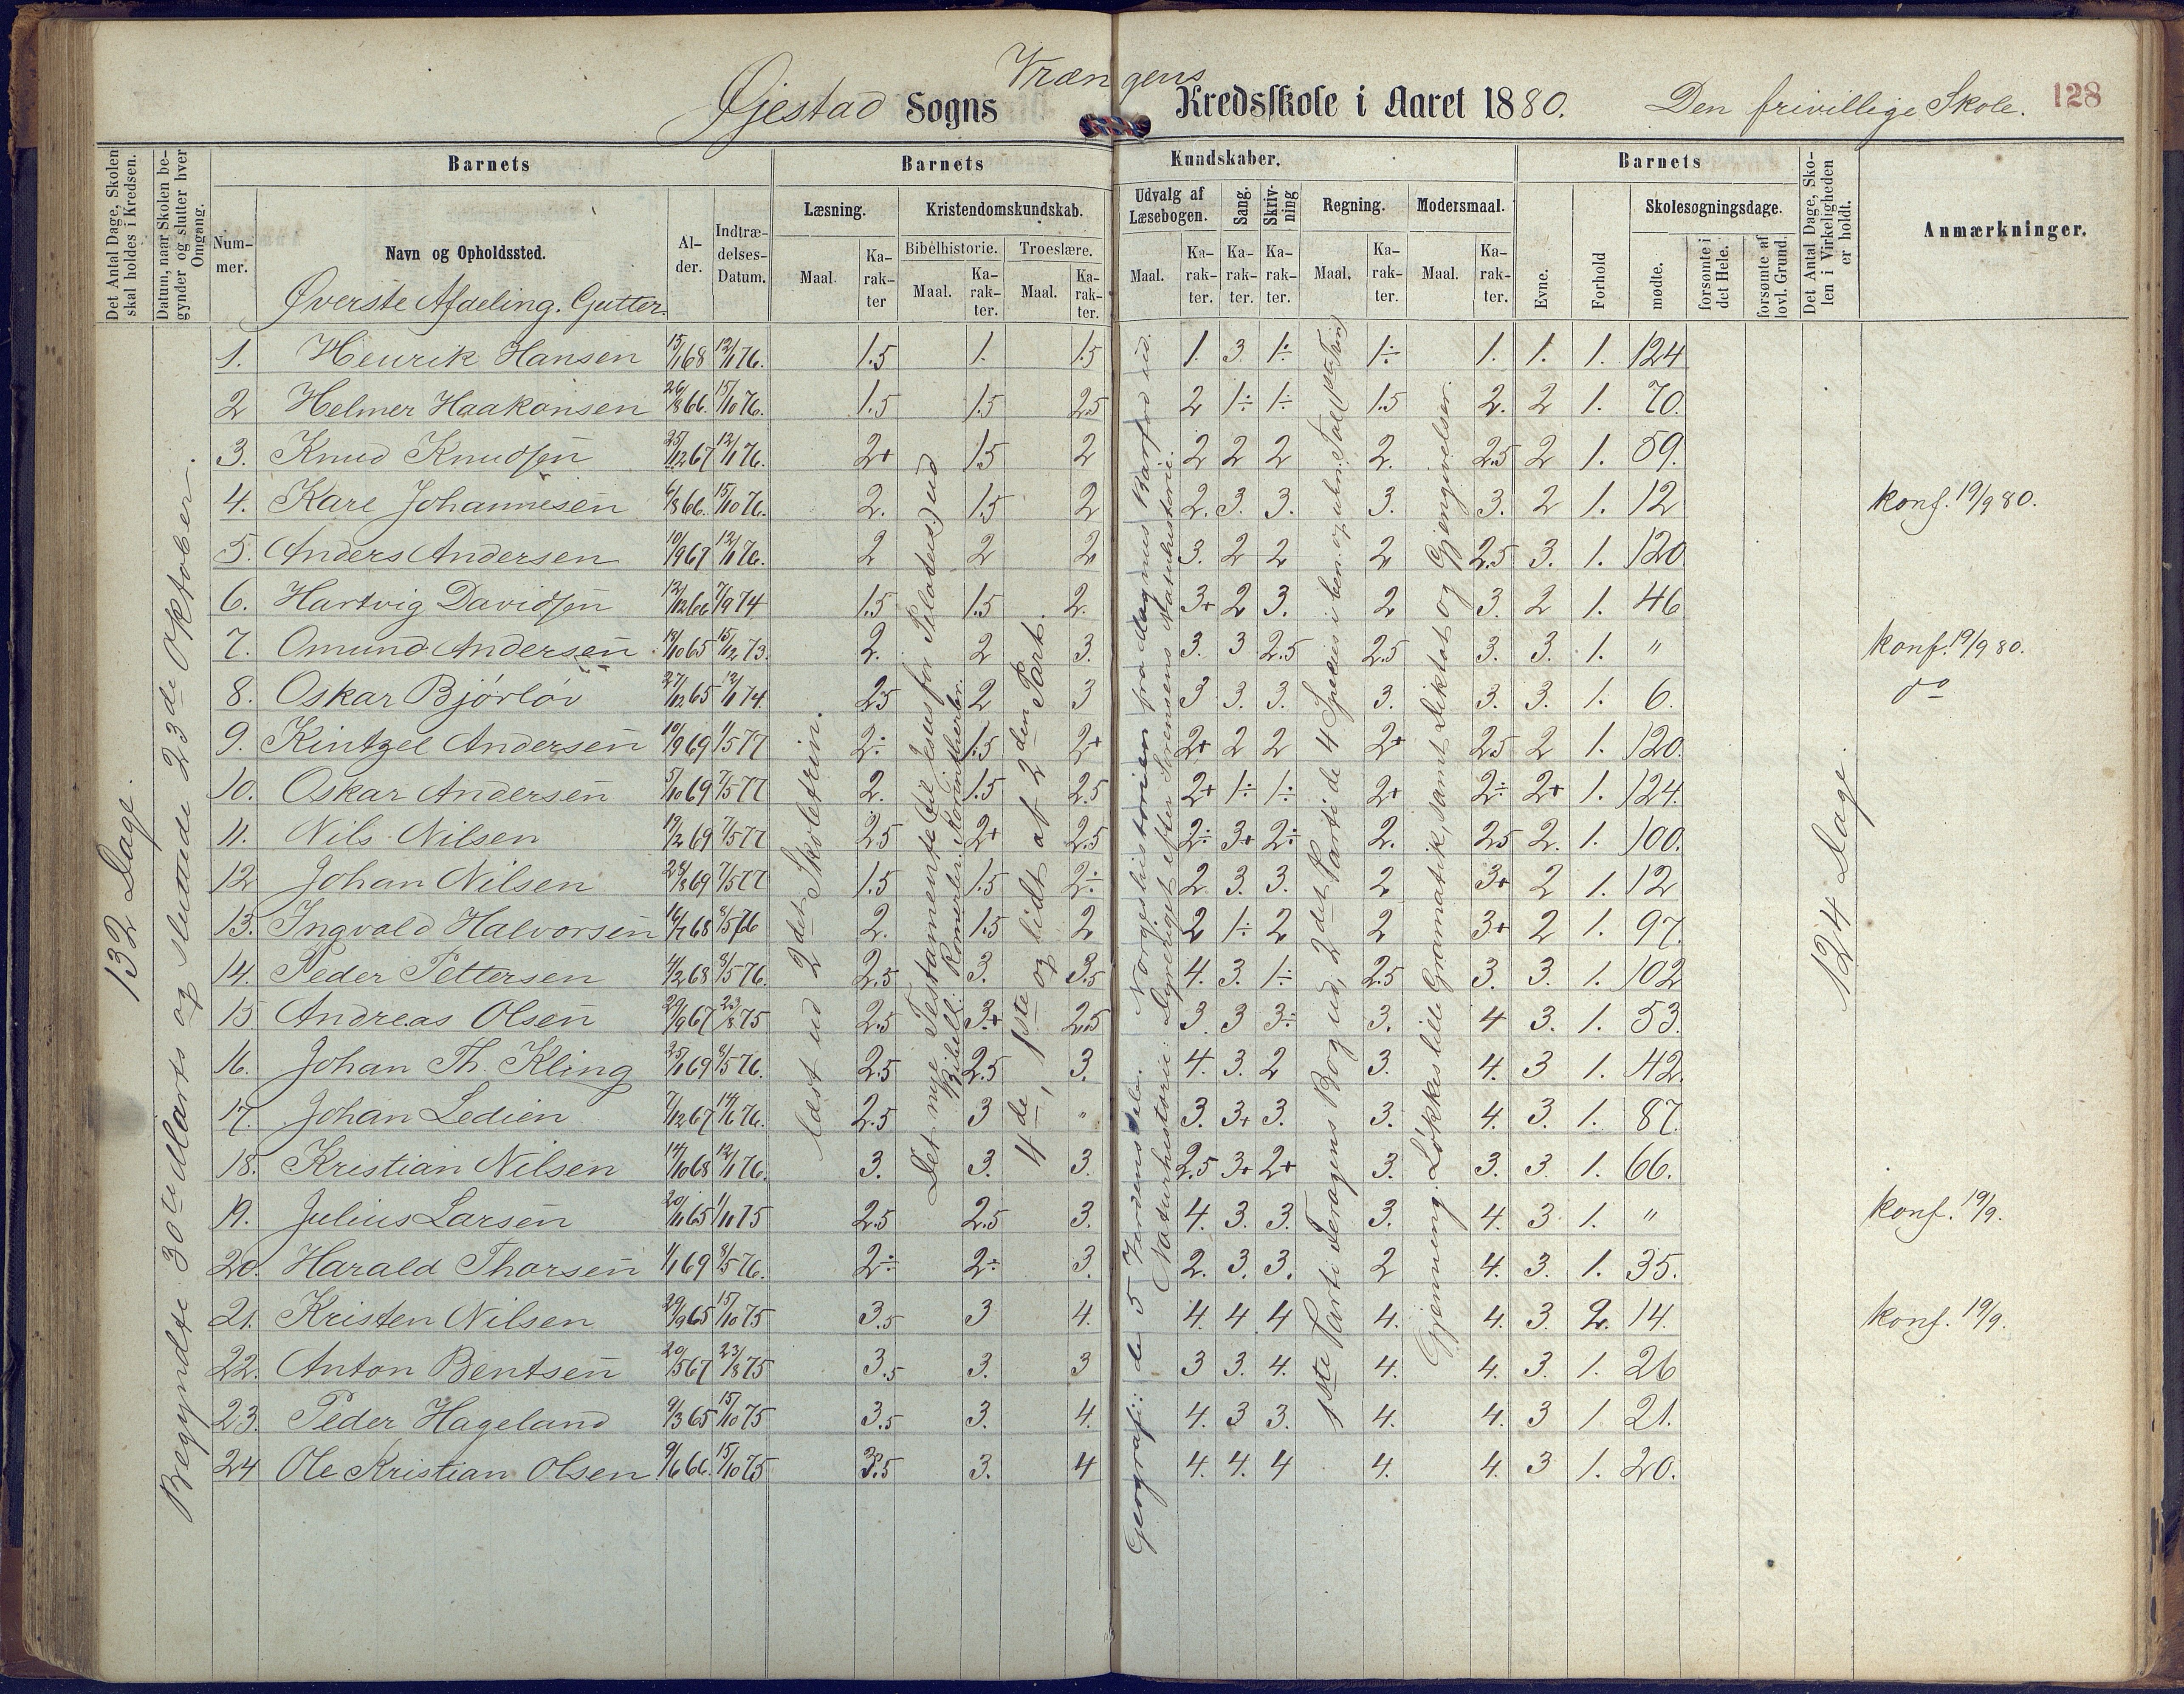 Øjestad Sogns Vrængens Kredsskole i Aaret 1880. Den frivillige Skole. 128
Det Antal Dage, Skolen skal holdes i Kredsen.
Datum, naar Skolen begynder og slutter hver Omgang.
Barnets
Nummer.
Navn og Opholdssted.
Alder.
Indtrædelses-Datum.
Barnets Kundskaber.
Læsning.
Maal.
Karakter
Kristendomskundskab.
Bibelhistorie.
Maal.
Karakter.
Troeslære.
Maal.
Karakter.
Udvalg af Læsebogen.
Maal.
Karakter.
Sang.
Karakter.
Skrivning
Karakter.
Regning.
Maal.
Karakter.
Modersmaal.
Maal.
Karakter.
Barnets
Evne.
Forhold
Skolesøgningsdage.
mødte.
forsømte i det Hele.
forsømte af lovl. Grund.
Det Antal Dage, Skolen i Virkeligheden er holdt.
Anmærkninger.
Øverste Afdeling. Gutter.
132 Dage.
Begyndte 30te Marts og sluttede 23de Oktober.
læst ud 2det Skoletrin.
Det nye Testamente (til Jesus for Pilatus.) ud
4de, 1ste og lidt af 2den Part.
Geografi: de 5 Verdensdele. Norgeshistorien fra Magnus Barfod ud.
Naturhistorie: Dyreriget efter Sørensens Naturhistorie.
Gjenneming. Løkkes lille Gramatik, samt Diktat og Gjengivelser.
124 Dage
1. Henrik Hansen 15/1 68 12/1 76. 1.5 1. 1.5 1. 3. 1÷ 1÷ 1. 1. 1. 124
2 Helmer Haakonsen 26/8 66. 15/10 76. 1.5 1.5 2.5 2 1÷ 1÷ 1.5 2. 2 1. 70.
3. Knud Knudsen 25/12 67 12/1 76. 2+ 1.5 2 2 2 2 2. 2.5 2 1. 59.
4. Karl Johannesen 6/8 66. 15/10 76. 2. 1.5 2 2. 3. 3. 3. 3. 2 1. 12 konf. 19/9 80.
5. Anders Andersen 10/9 67 12/1 76. 2 2 2 3. 2 2 2 2.5 3. 1. 120
6. Hartvig Davidsen 12/12 66 7/9 74 1.5 1.5 2. 3+ 2 3. 2 3. 2 1. 46
7. Omund Andersen 18/10 65 15/12 73. 2. 2 3. 3. 3 2.5 2.5 3. 3. 1. " konf. 19/9 80.
8. Oskar Bjørløv 27/12 65 12/1 74. 2.5 2 3 3 3. 3. 3. 3. 3. 1. 6. do
9. Kintzel Andersen 10/9 69 1/5 77 2÷ 1.5 2+ 2+ 2 2 2+ 2.5 2 1. 120.
10. Oskar Andersen 5/10 69 7/5 77 2. 1.5 2.5 2+ 1÷ 1÷ 2+ 2÷ 2+ 1. 124.
11. Nils Nilsen 19/2 69 7/5 77 2.5 2+ 2.5 2÷ 3+ 2÷ 2. 2.5 2. 1. 100.
12 Johan Nilsen 28/8 69 7/5 77 1.5 1.5 2÷ 2. 3. 3. 2 3+ 2 1. 12
13. Ingvald Halvorsen 16/7 68 8/5 76 2. 1.5 2 2 1÷ 2 2 3+ 2 1. 97.
14. Peder Pettersen 4/2 68 8/5 76. 2.5 3. 3.5 4. 3. 1÷ 2.5 3. 3. 1. 102
15 Andreas Olsen 29/9 67 23/8 75 2.5 3+ 2.5 3. 3 3÷ 3. 4 3. 1. 53.
16. Johan Th. Kling 25/1 69 8/5 76. 2.5 2.5 3. 4. 3. 2 3. 4. 3 1. 42.
17. Johan Ledien 7/12 67 14/6 76. 2.5 3 " 3. 3+ 3. 3. 4. 3. 1. 87.
18. Kristian Nilsen 14/10 68 12/1 76. 3. 3. 3. 2.5 3+ 2+ 3. 3. 3. 1. 66.
19. Julius Larsen 20/11 65 1/11 75 2.5 2.5 3. 4. 3. 3. 3. 4. 3. 1. " konf. 19/9.
20. Harald Thorsen 1/1 69 8/5 76. 2÷ 2÷ 3. 2. 3. 3. 2 4. 3. 1. 35.
21. Kristen Nilsen 29/9 65 15/10 75 3.5 3 4. 4. 4 4 4. 4. 3. 2. 14. konf. 19/9.
22. Anton Bentsen 20/5 67 23/8 75 3.5 3. 3 3 3. 4. 4. 4. 3. 1. 26
23. Peder Hageland 9/3 65 15/10 75 3.5 3. 4. 4. 3 3. 4. 4. 3 1 21.
24 Ole Kristian Olsen 9/6 66. 15/10 75 3.5 3. 4 4. 4. 4 4. 4. 3 1. 20.